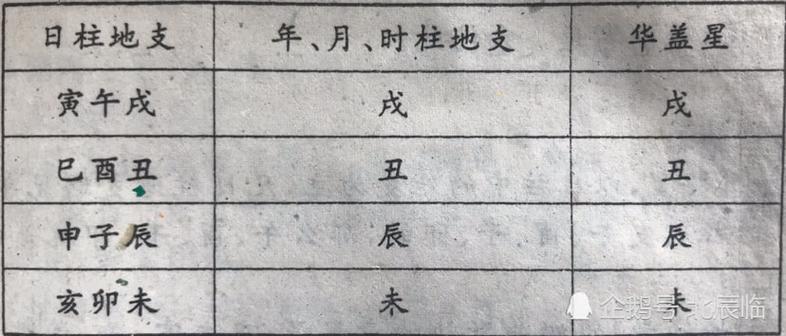 日柱地支 年、月、时柱地支 华盖星
寅午戌 戌 戌
巳酉丑 丑 丑
申子辰 辰 辰
亥卯未 未 未
企鹅号 北辰临